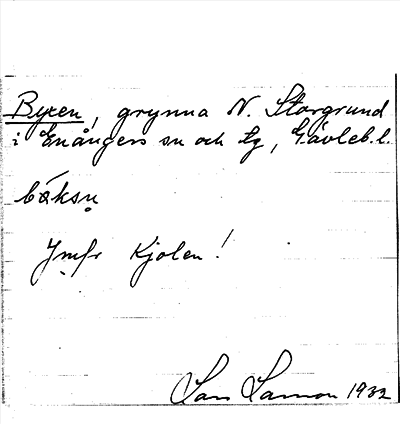 Byxen, grynna N. Storgrund
i Enångers sn och tg, Gävleb. l.
bɔ́ksṇ
Jmfr Kjolen!
Lars Larsson 1932